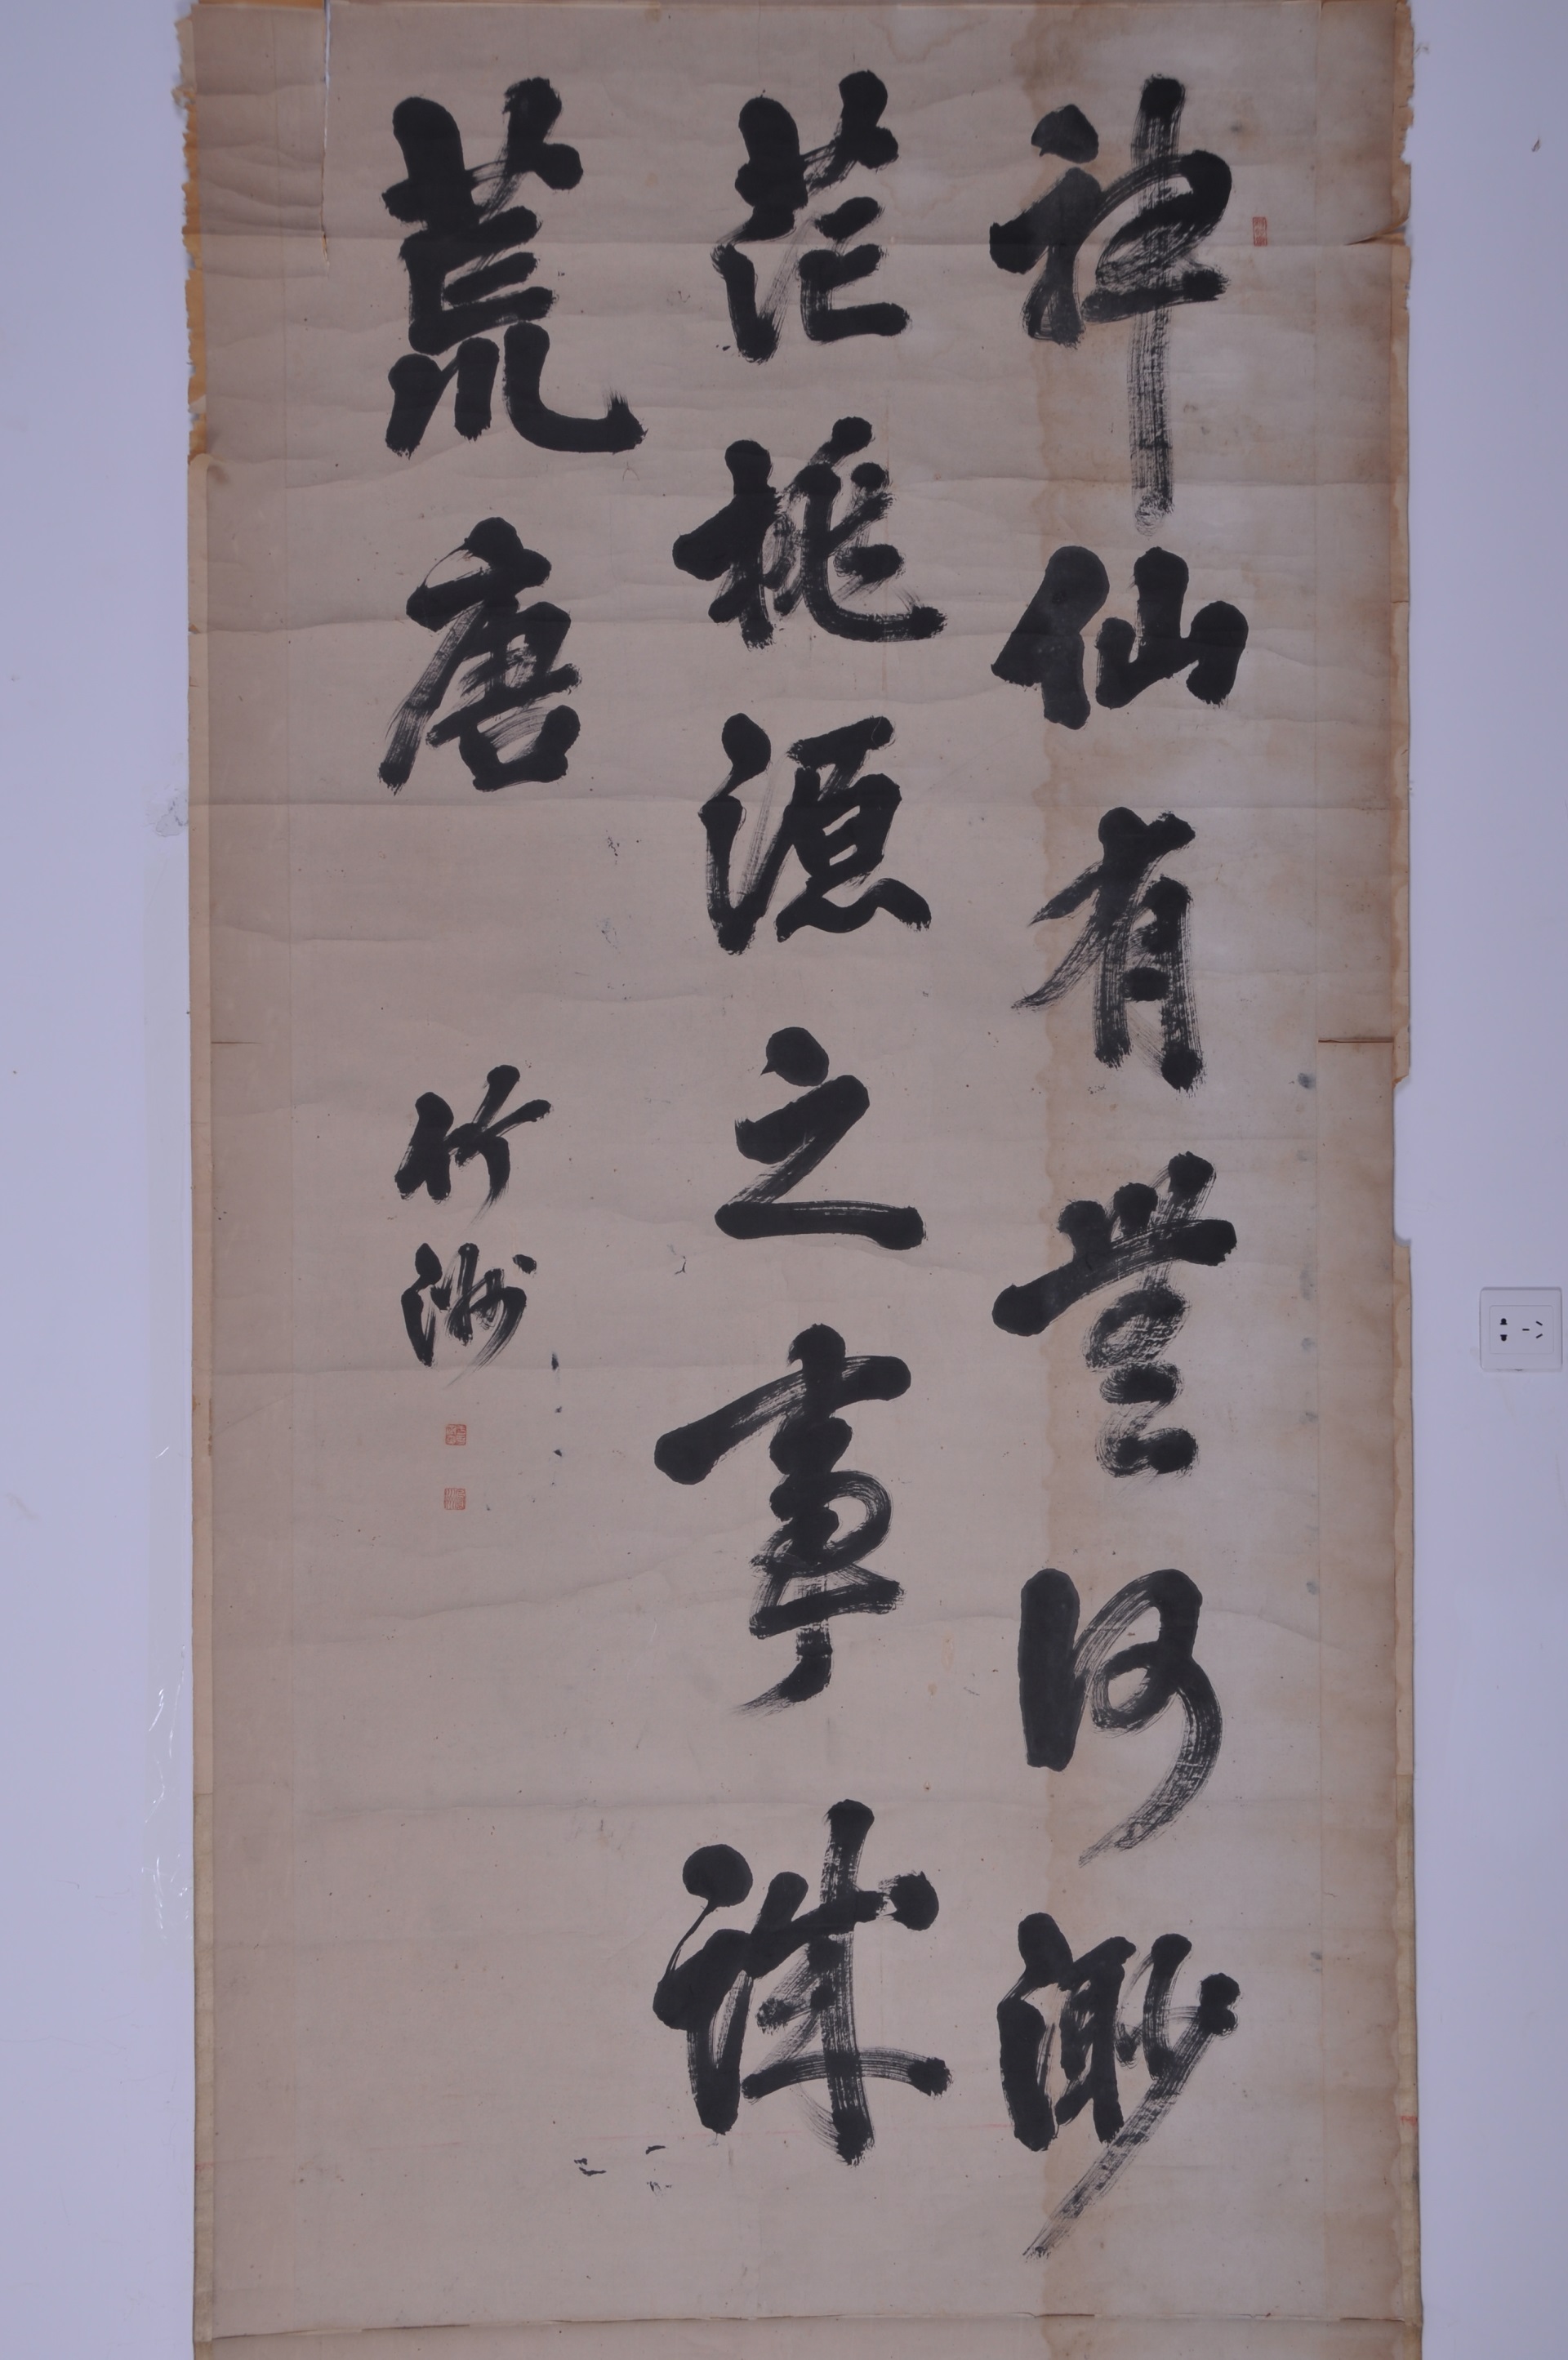 神仙有無何渺
茫桃源之事誠
荒唐
竹洲